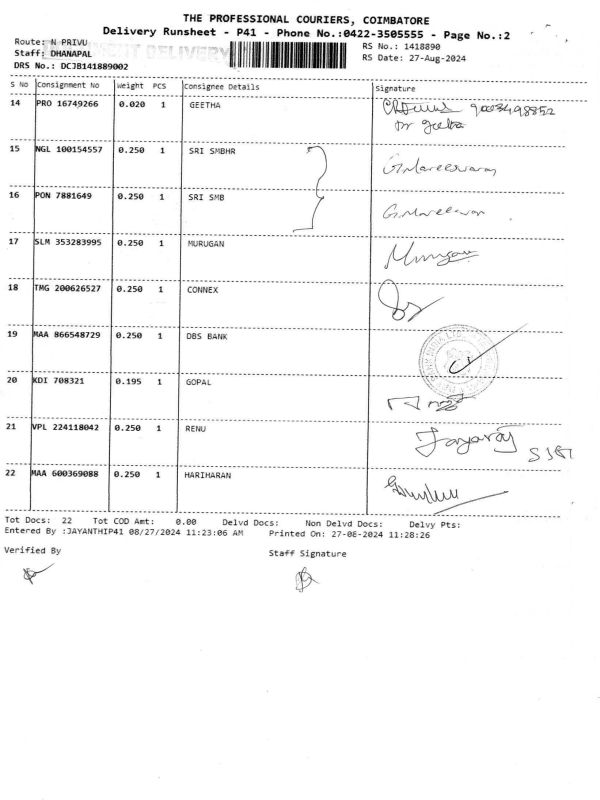 THE PROFESSIONAL COURIERS, COIMBATORE
Delivery Runsheet - P41 - Phone No.:0422-3505555 - Page No.:2
Route: N PRIVU
Staff: DHANAPAL
DRS No.: DCJB141889002
RS No.: 1418890
RS Date: 27-Aug-2024
S No Consignment No Weight PCS Consignee Details Signature
14 PRO 16749266 0.020 1 GEETHA 9003498852
15 NGL 100154557 0.250 1 SRI SMBHR G.Mareeswaran
16 PON 7881649 0.250 1 SRI SMB
17 SLM 353283995 0.250 1 MURUGAN Murugan
18 TMG 200626527 0.250 1 CONNEX
19 MAA 866548729 0.250 1 DBS BANK
20 KDI 708321 0.195 1 GOPAL
21 VPL 224118042 0.250 1 RENU Jayaraj
22 MAA 600369088 0.250 1 HARIHARAN
Tot Docs: 22 Tot COD Amt: 0.00 Delvd Docs: Non Delvd Docs: Delvy Pts:
Entered By :JAYANTHIP41 08/27/2024 11:23:06 AM Printed On: 27-08-2024 11:28:26
Verified By
Staff Signature